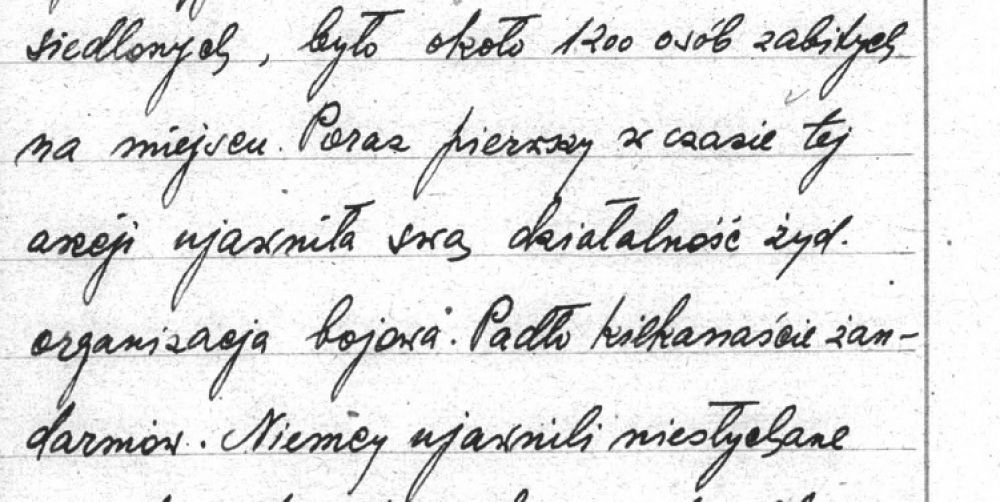 siedlonych, było około 1200 osób zabitych
na miejscu. Poraz pierwszy w czasie tej
akcji ujawniła swą działalność żyd.
organizacja bojowa. Padło kilkanaście żan-
darmów. Niemcy ujawnili niesłychane